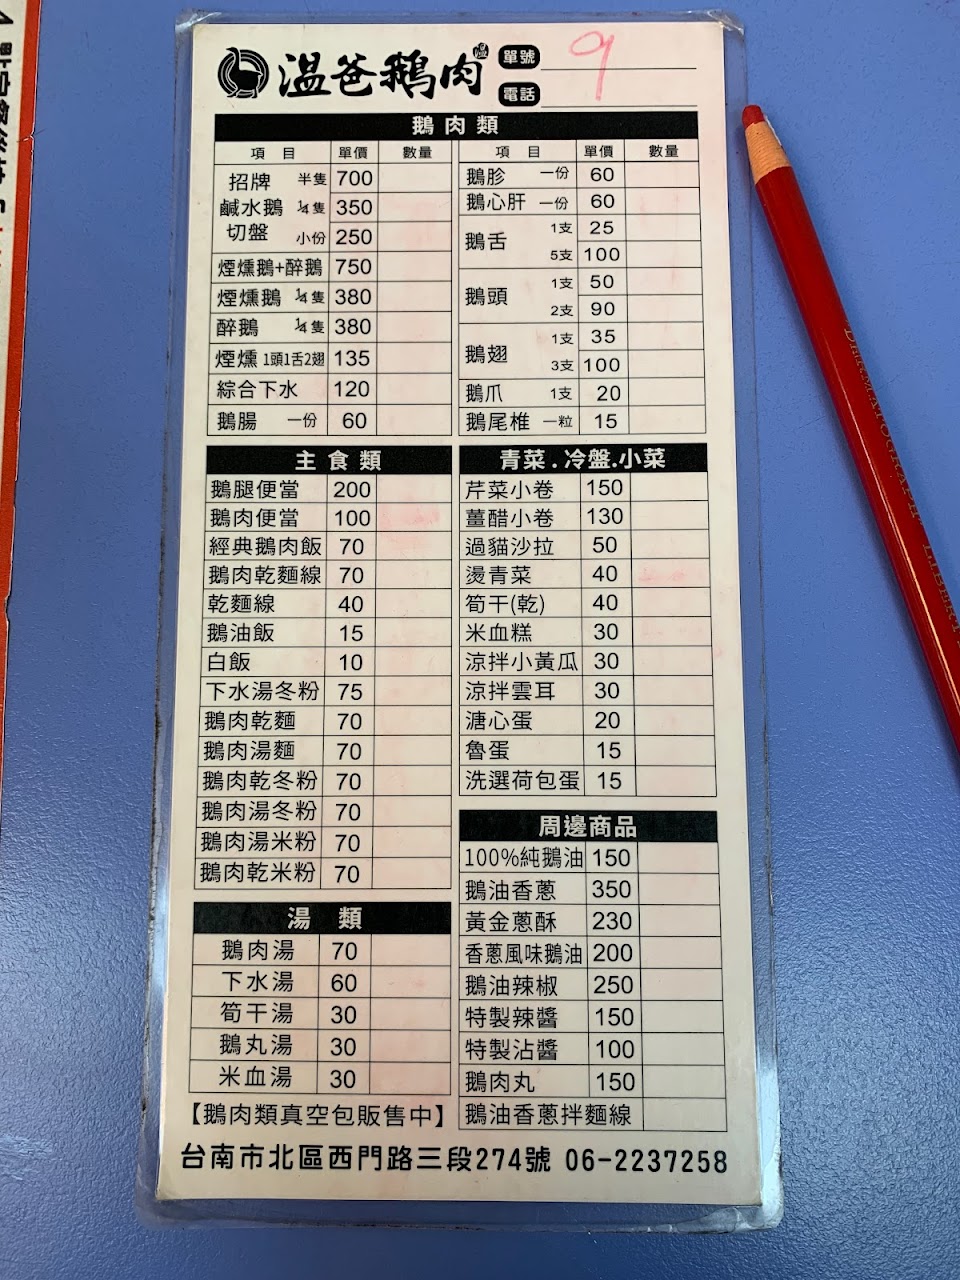 溫爸鵝肉 溫
單號 9
電話
鵝肉類
項目 單價 數量
招牌鹹水鵝切盤 半隻 700
¼隻 350
小份 250
煙燻鵝+醉鵝 750
煙燻鵝 ¼隻 380
醉鵝 ¼隻 380
煙燻 1頭1舌2翅 135
綜合下水 120
鵝腸 一份 60
項目 單價 數量
鵝胗 一份 60
鵝心肝 一份 60
鵝舌 1支 25
5支 100
鵝頭 1支 50
2支 90
鵝翅 1支 35
3支 100
鵝爪 1支 20
鵝尾椎 一粒 15
主食類
鵝腿便當 200
鵝肉便當 100
經典鵝肉飯 70
鵝肉乾麵線 70
乾麵線 40
鵝油飯 15
白飯 10
下水湯冬粉 75
鵝肉乾麵 70
鵝肉湯麵 70
鵝肉乾冬粉 70
鵝肉湯冬粉 70
鵝肉湯米粉 70
鵝肉乾米粉 70
湯類
鵝肉湯 70
下水湯 60
筍干湯 30
鵝丸湯 30
米血湯 30
【鵝肉類真空包販售中】
青菜.冷盤.小菜
芹菜小卷 150
薑醋小卷 130
過貓沙拉 50
燙青菜 40
筍干(乾) 40
米血糕 30
涼拌小黃瓜 30
涼拌雲耳 30
溏心蛋 20
魯蛋 15
洗選荷包蛋 15
周邊商品
100%純鵝油 150
鵝油香蔥 350
黃金蔥酥 230
香蔥風味鵝油 200
鵝油辣椒 250
特製辣醬 150
特製沾醬 100
鵝肉丸 150
鵝油香蔥拌麵線
台南市北區西門路三段274號 06-2237258